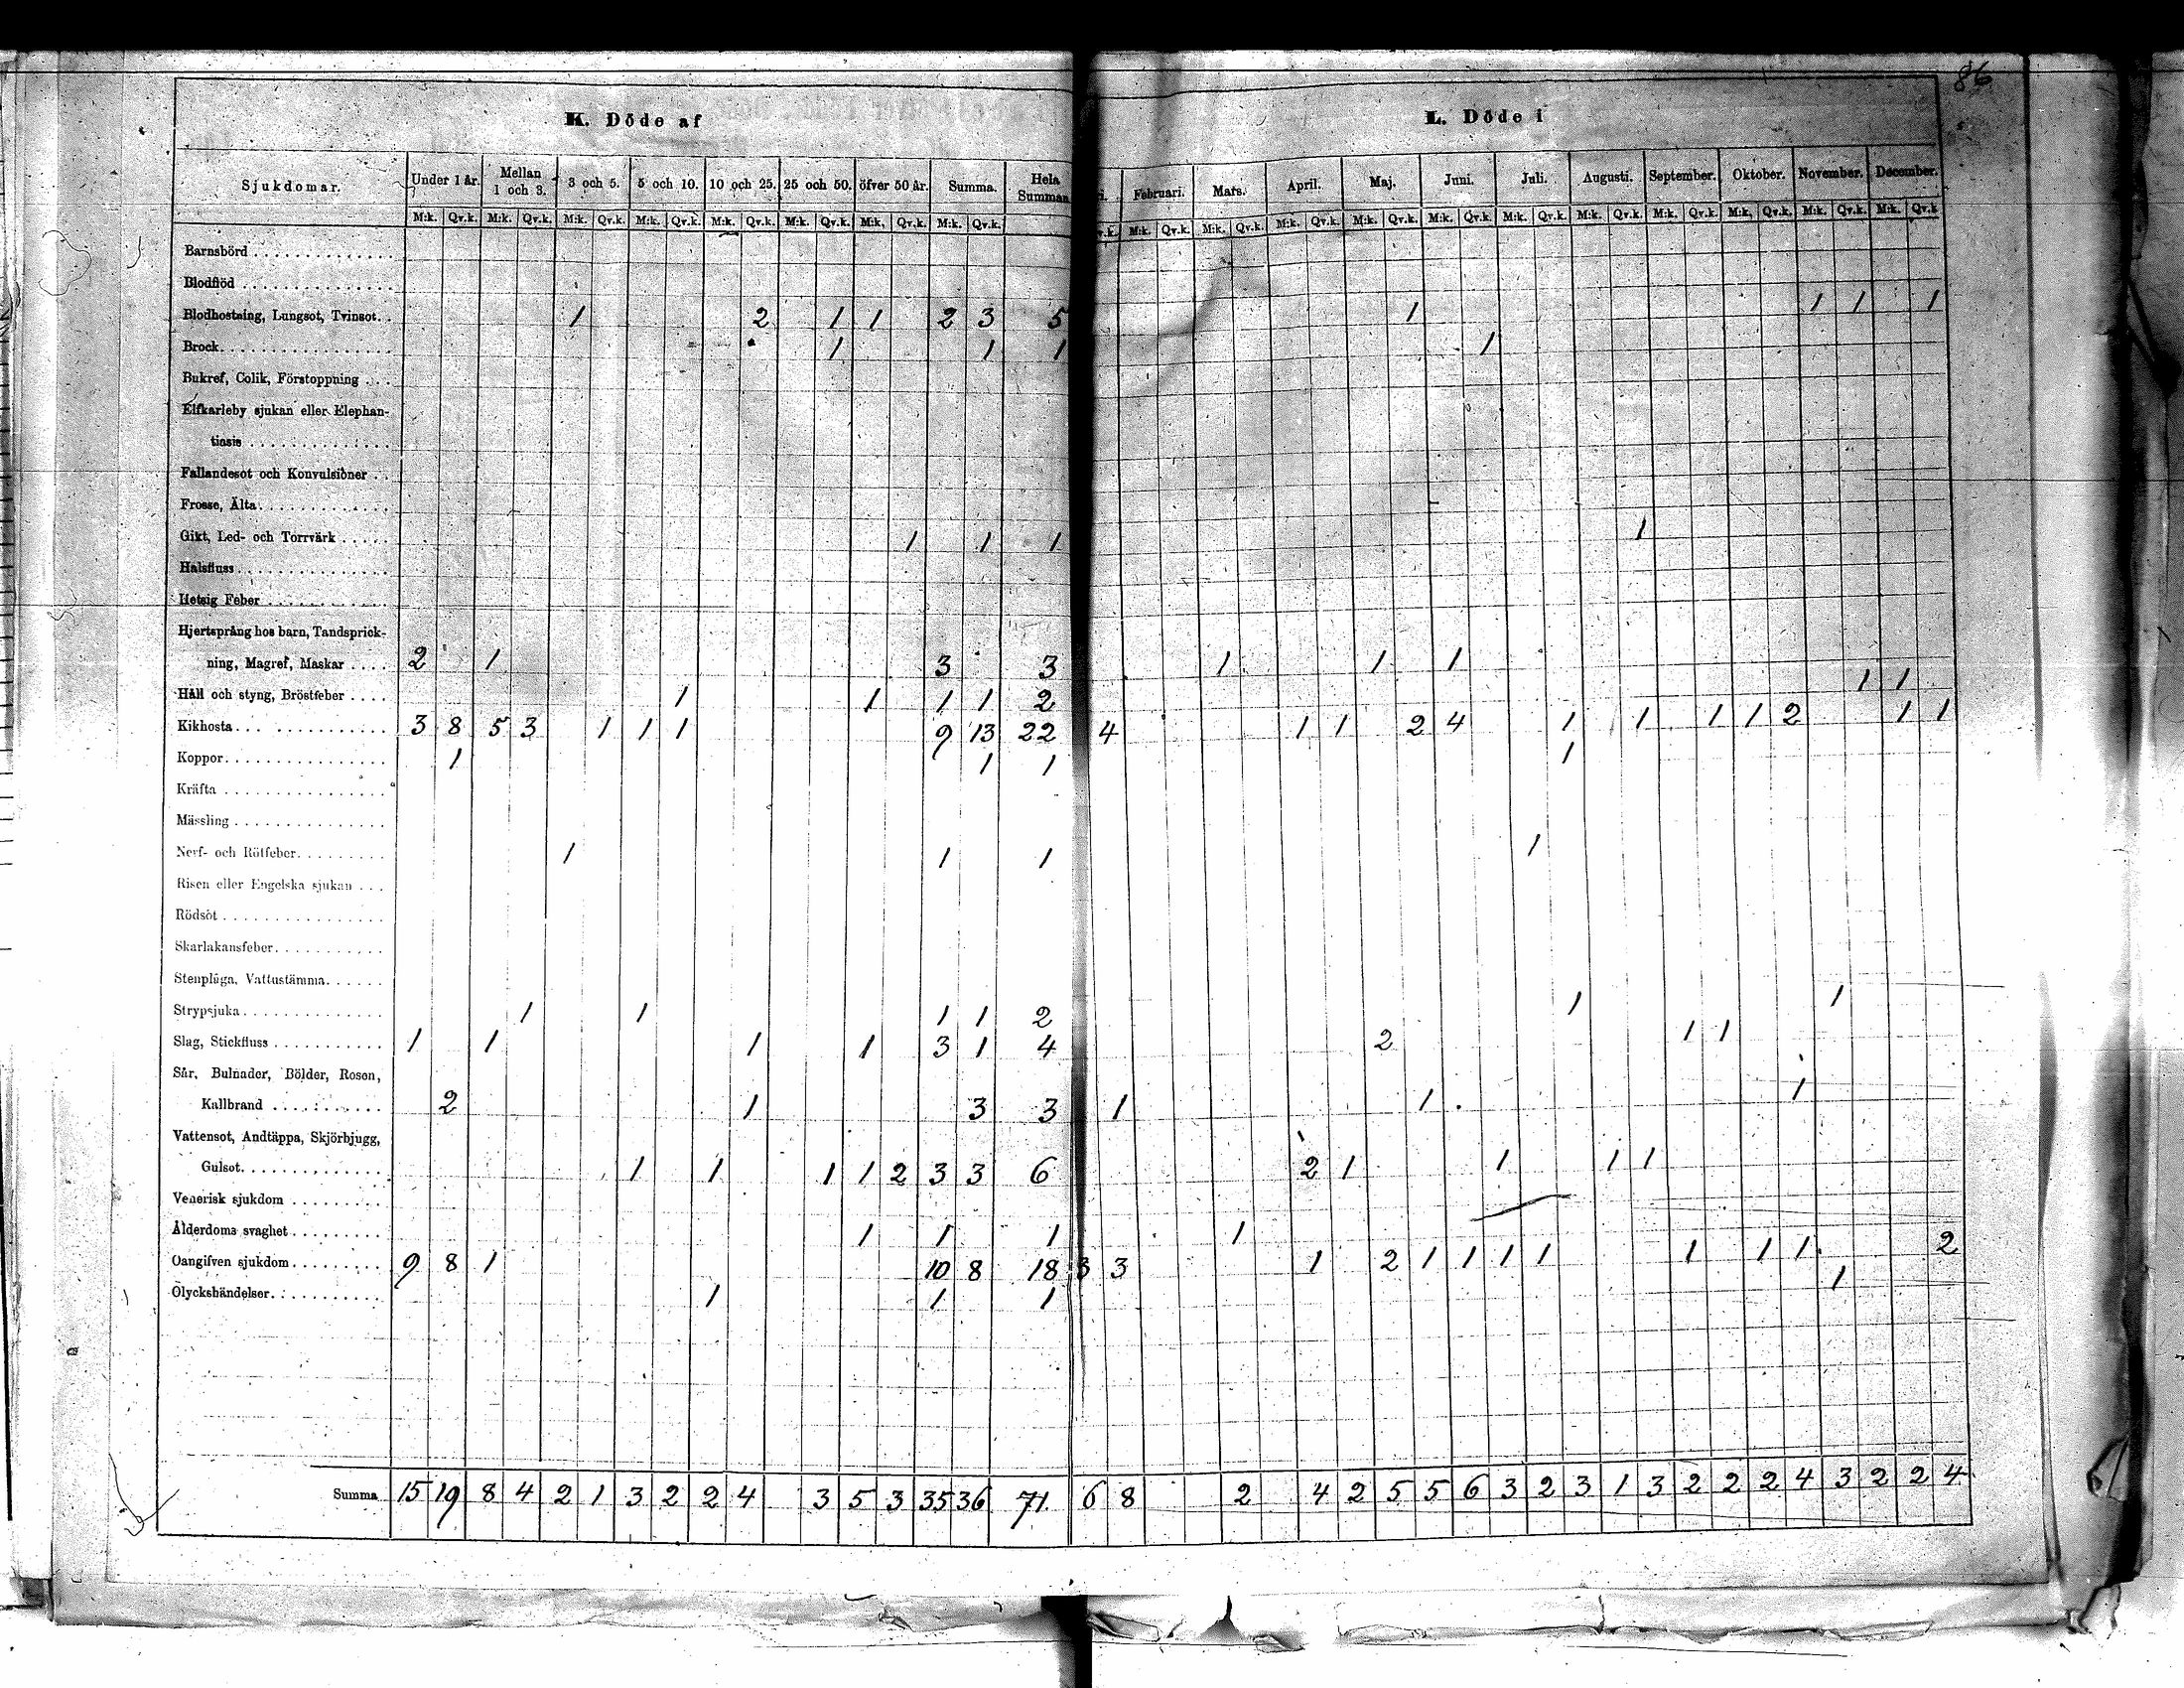 86
K. Döde af
L. Döde i
Sjukdomar. Under 1 år. Mellan 1 och 3. 3 och 5. 5 och 10. 10 och 25. 25 och 50. öfver 50 år. Summa. Hela Summan
ri. Februari. Mars. April. Maj. Juni. Juli. Augusti. September. Oktober. November. December.
M:k. Qv.k. M:k. Qv.k. M:k. Qv.k. M:k. Qv.k. M:k. Qv.k. M:k. Qv.k. M:k. Qv.k. M:k. Qv.k.
v.k. M:k. Qv.k. M:k. Qv.k. M:k. Qv.k. M:k. Qv.k. M:k. Qv.k. M:k. Qv.k. M:k. Qv.k. M:k. Qv.k. M:k. Qv.k. M:k. Qv.k. M:k. Qv.k
Barnsbörd
Blodflöd
Blodhostning, Lungsot, Tvinsot. 1 2 1 1 2 3 5 1 1 1 1
Brock 1 1 1 1
Bukref, Colik, Förstoppning
Elfkarleby sjukan eller Elephan-
tiasis
Fallandesot och Konvulsioner
Frosse, Älta
Gikt, Led- och Torrvärk 1 1 1 1
Halsfluss
Hetsig Feber
Hjertsprång hos barn, Tandsprick-
ning, Magref, Maskar 2 1 3 3 1 1 1
Håll och styng, Bröstfeber 1 1 1 1 2 1 1
Kikhosta 3 8 5 3 1 1 1 9 13 22 4 1 1 2 4 1 1 1 1 2 1 1
Koppor 1 1 1 1
Kräfta
Mässling
Nerf- och Rötfeber 1 1 1 1
Risen eller Engelska sjukan
Rödsot
Skarlakansfeber
Stenplåga, Vattustämma
Strypsjuka 1 1 1 1 2 1 1
Slag, Stickfluss 1 1 1 1 3 1 4 2 1 1
Sår, Bulnader, Bölder, Rosen,
Kallbrand 2 1 3 3 1 1 1
Vattensot, Andtäppa, Skjörbjugg,
Gulsot 1 1 1 1 2 3 3 6 2 1 1 1 1
Venerisk sjukdom
Ålderdoms svaghet 1 1 1 1
Oangifven sjukdom 9 8 1 10 8 18 3 3 1 2 1 1 1 1 1 1 1 2
Olyckshändelser 1 1 1 1
Summa 15 19 8 4 2 1 3 2 2 4 3 5 3 35 36 71 6 8 2 4 2 5 5 6 3 2 3 1 3 2 2 2 4 3 2 2 4